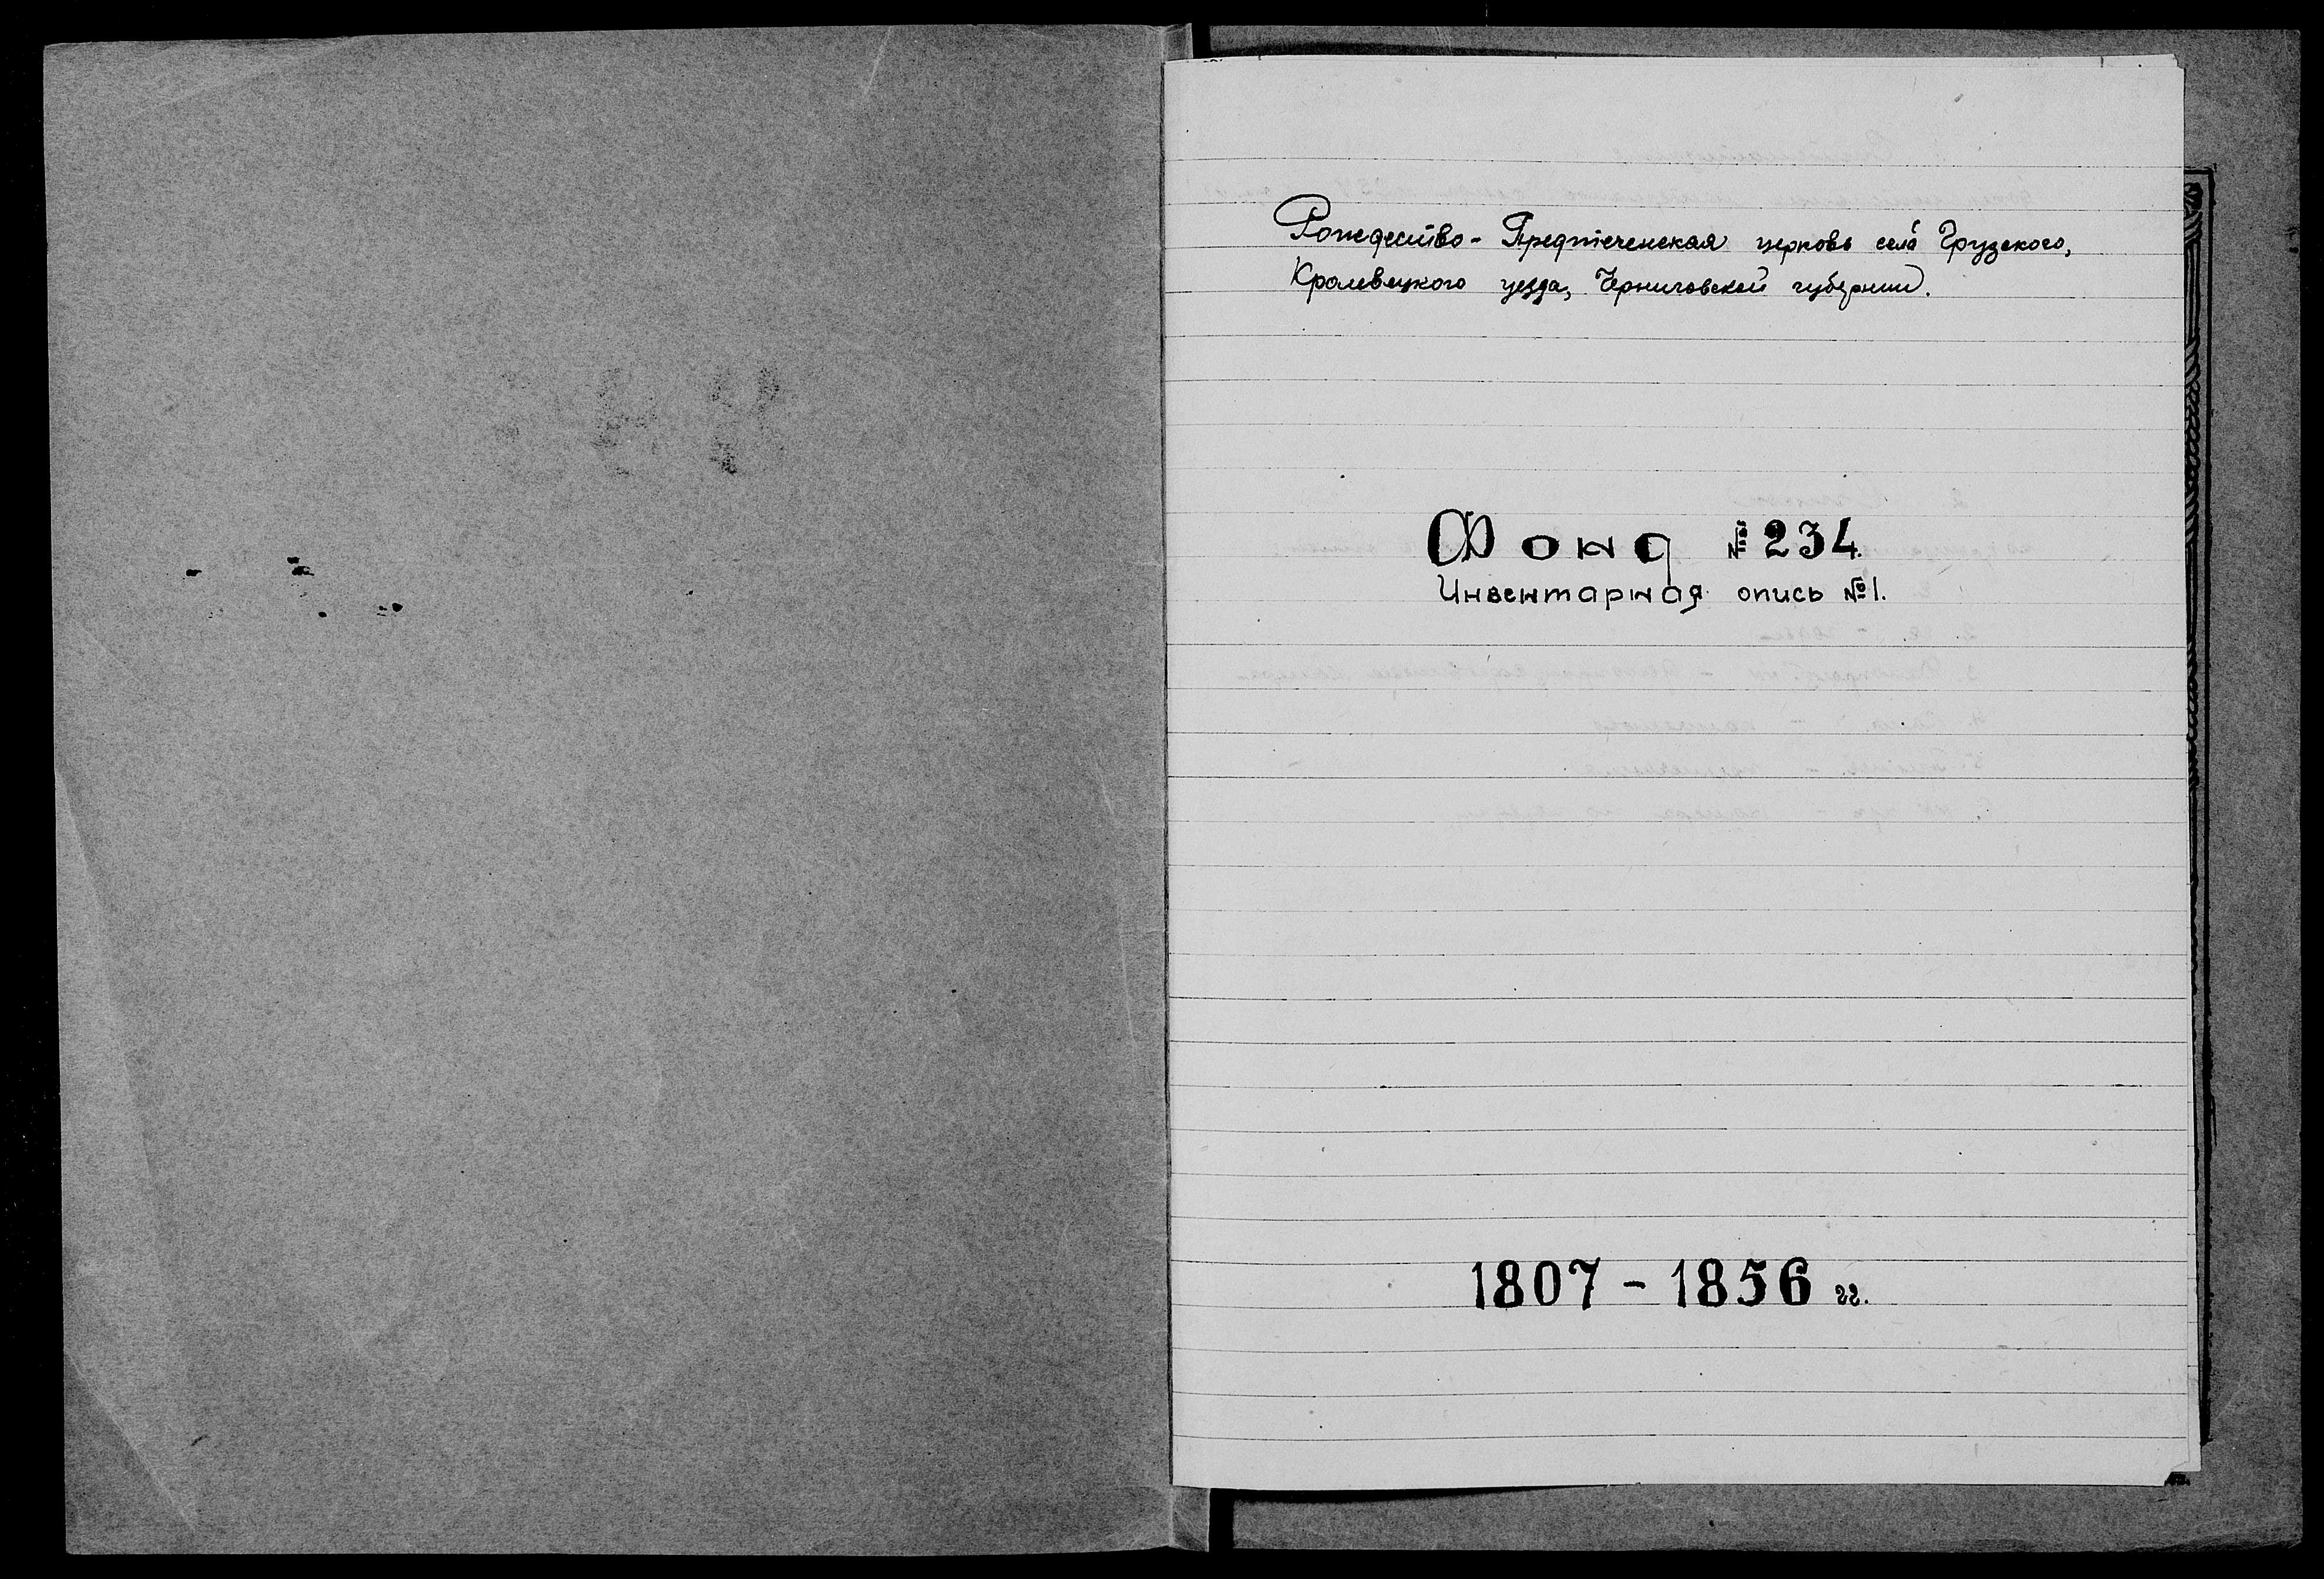 Рождество-Предтеченская церковь села Грузского,
Кролевецкого уезда, Черниговской губернии.
Фонд №234.
Инвентарная опись №1.
1807 - 1856 гг.